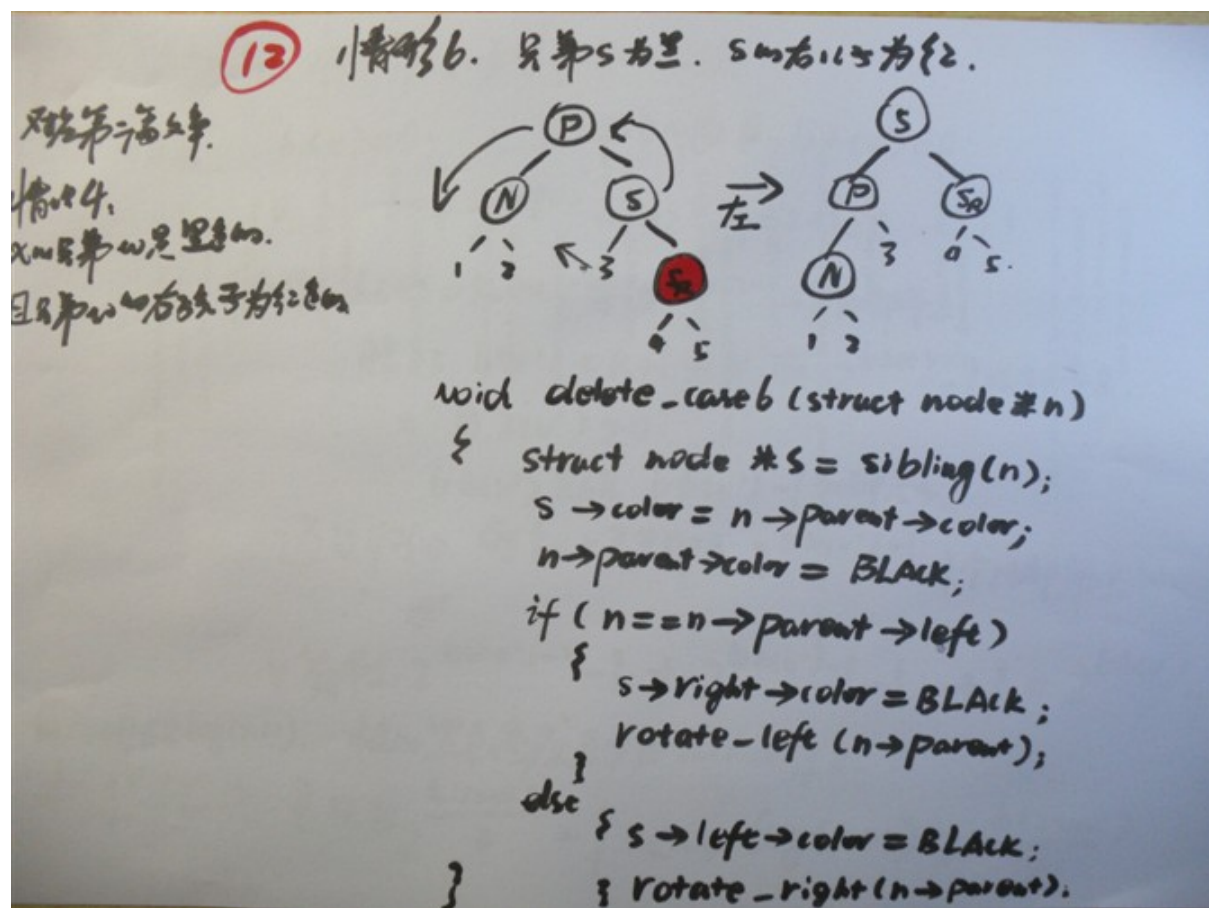 12 情形6. 兄弟S为黑. S的右儿子为红.
对应第二篇文章.
情况4.
x的兄弟w是黑色的.
且兄弟w的右孩子为红色的
P
N S
1 2 3
SR
4 5
左
S
P SR
N 3 4 5.
1 2
void delete_case6 (struct node *n)
{
struct node *S = sibling(n);
s →color = n →parent →color;
n→parent→color = BLACK;
if ( n==n→parent →left)
{
s→right→color = BLACK;
rotate_left (n→parent);
}
else
{ s→left→color = BLACK;
} } rotate_right(n→parent).